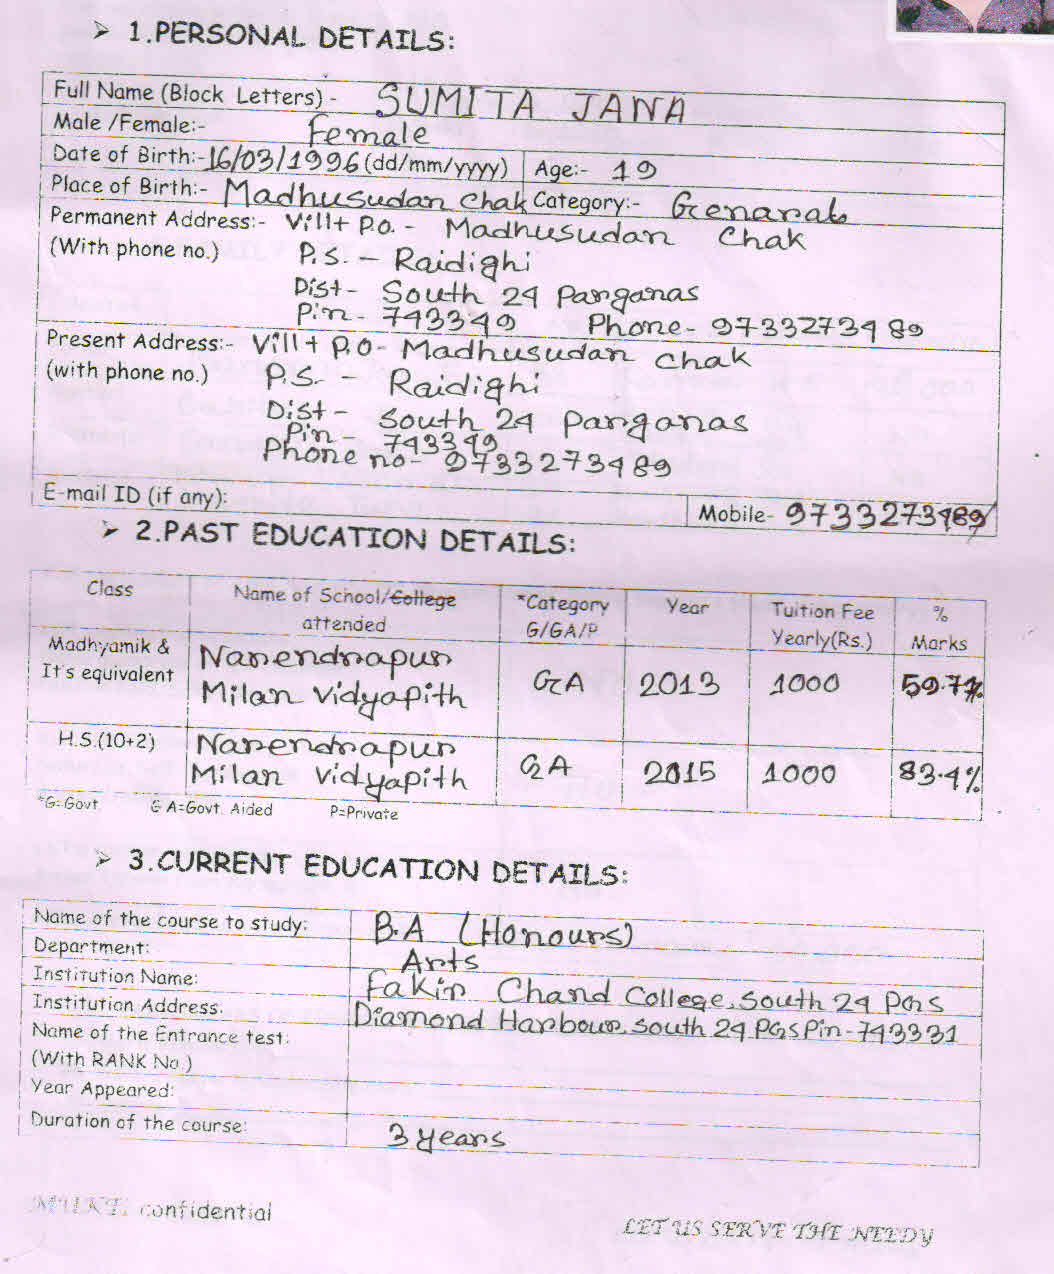 ➢ 1.PERSONAL DETAILS:
Full Name (Block Letters) - SUMITA JANA
Male /Female:- Female
Date of Birth:- 16/03/1996 (dd/mm/yyyy) Age:- 19
Place of Birth:- Madhusudan chak Category:- Genaral
Permanent Address:- Vill+ P.O. - Madhusudan Chak
(With phone no.) P.S. - Raidighi
Dist- South 24 Parganas
Pin - 743349 Phone- 9733273489
Present Address:- Vill+ P.O- Madhusudan chak
(with phone no.) P.S. - Raidighi
Dist - South 24 Parganas
Pin - 743349
Phone no- 9733273489
E-mail ID (if any): Mobile- 9733273489
➢ 2.PAST EDUCATION DETAILS:
Class Name of School/College attended *Category G/GA/P Year Tuition Fee Yearly(Rs.) % Marks
Madhyamik & Narendrapur
It's equivalent Milan Vidyapith GA 2013 1000 59.77%
H.S.(10+2) Narendrapur
Milan Vidyapith GA 2015 1000 83.4%
*G=Govt. G A=Govt. Aided P=Private
➢ 3.CURRENT EDUCATION DETAILS:
Name of the course to study: B.A (Honours)
Department: Arts
Institution Name: Fakir Chand College, South 24 PGS
Institution Address: Diamond Harbour, South 24 PGS Pin-743331
Name of the Entrance test:
(With RANK No.)
Year Appeared:
Duration of the course: 3 years
MUKTI confidential
LET US SERVE THE NEEDY